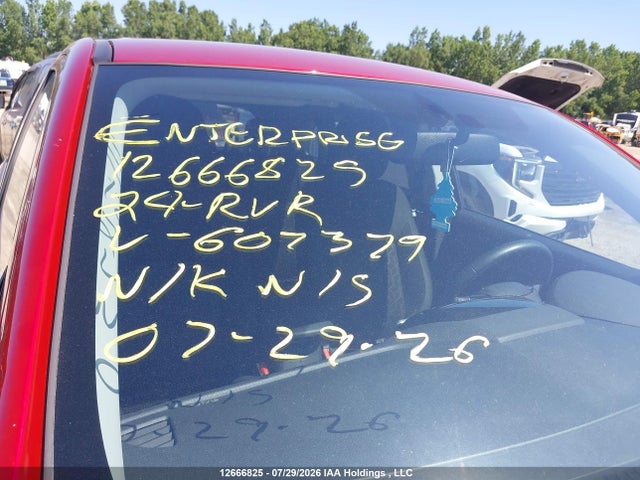 ENTERPRISE
12666825
24-RVR
V-607379
N/K N/S
07-29-26
12666825 - 07/29/2026 IAA Holdings , LLC